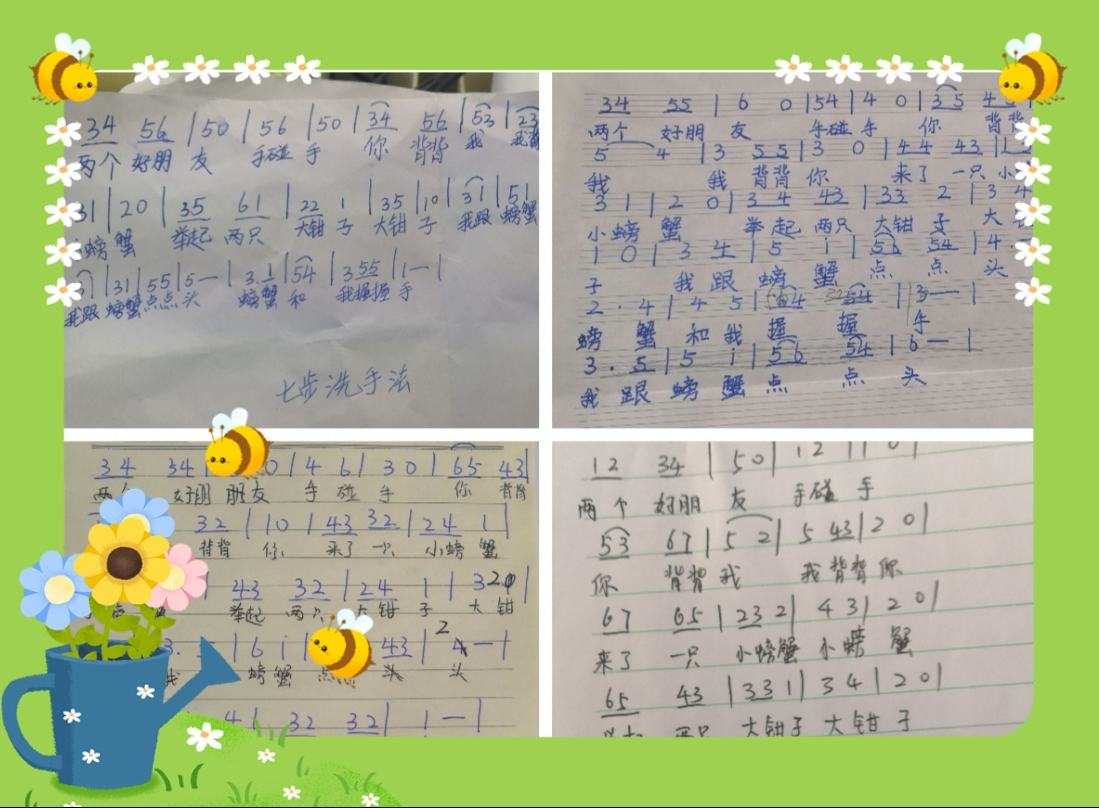 34 56 | 50 | 56 | 50 | 34 56 | 53 | 23
两个 好朋 友 手碰 手 你 背背 我 我背
31 | 20 | 35 61 | 22 1 | 35 | 10 | 31 | 51
螃 蟹 举起 两只 大钳 子 大钳 子 我跟 螃蟹
| 31 | 55 | 5 — | 3.1 | 54 | 3 55 | 1 — |
我跟 螃蟹 点点 头 螃蟹 和 我握握 手
七步洗手法
34 55 | 6 0 | 54 | 4 0 | 35
两个 好朋 友 手碰 手 你 背背
5 4 | 3 55 | 3 0 | 44 43 |
我 我 背背 你 来了 一只 小
3 1 | 2 0 | 34 43 | 33 2 | 3 4
小螃 蟹 举起 两只 大钳 子 大
1 0 | 3 4 | 5 i | 56 54 | 4
子 我 跟 螃 蟹 点 点 头
2 . 4 | 4 5 | 64 54 | 3 — |
螃 蟹 和 我 握 握 手
3 . 5 | 5 i | 56 54 | 6 — |
我 跟 螃 蟹 点 点 头
34 34 | 0 | 4 6 | 3 0 | 65 43 |
好朋 朋友 手 碰 手 你 背背
32 | 1 0 | 43 32 | 24 1 |
背背 你 来了 一只 小螃 蟹
43 32 | 24 1 | 3 2 0 |
举起 两只 大钳 子 大 钳
3. | 6 i | 43 | 2 — |
我 螃 蟹 点点 头 头
4 | 32 32 | 1 — |
12 34 | 5 0 | 12 1 | 0 |
两个 好朋 友 手碰 手
53 67 | 5 2 | 5 43 | 2 0 |
你 背背 我 我 背背 你
67 65 | 23 2 | 4 3 | 2 0 |
来了 一只 小螃蟹 小螃 蟹
65 43 | 33 1 | 3 4 | 2 0 |
两只 大钳子 大钳 子